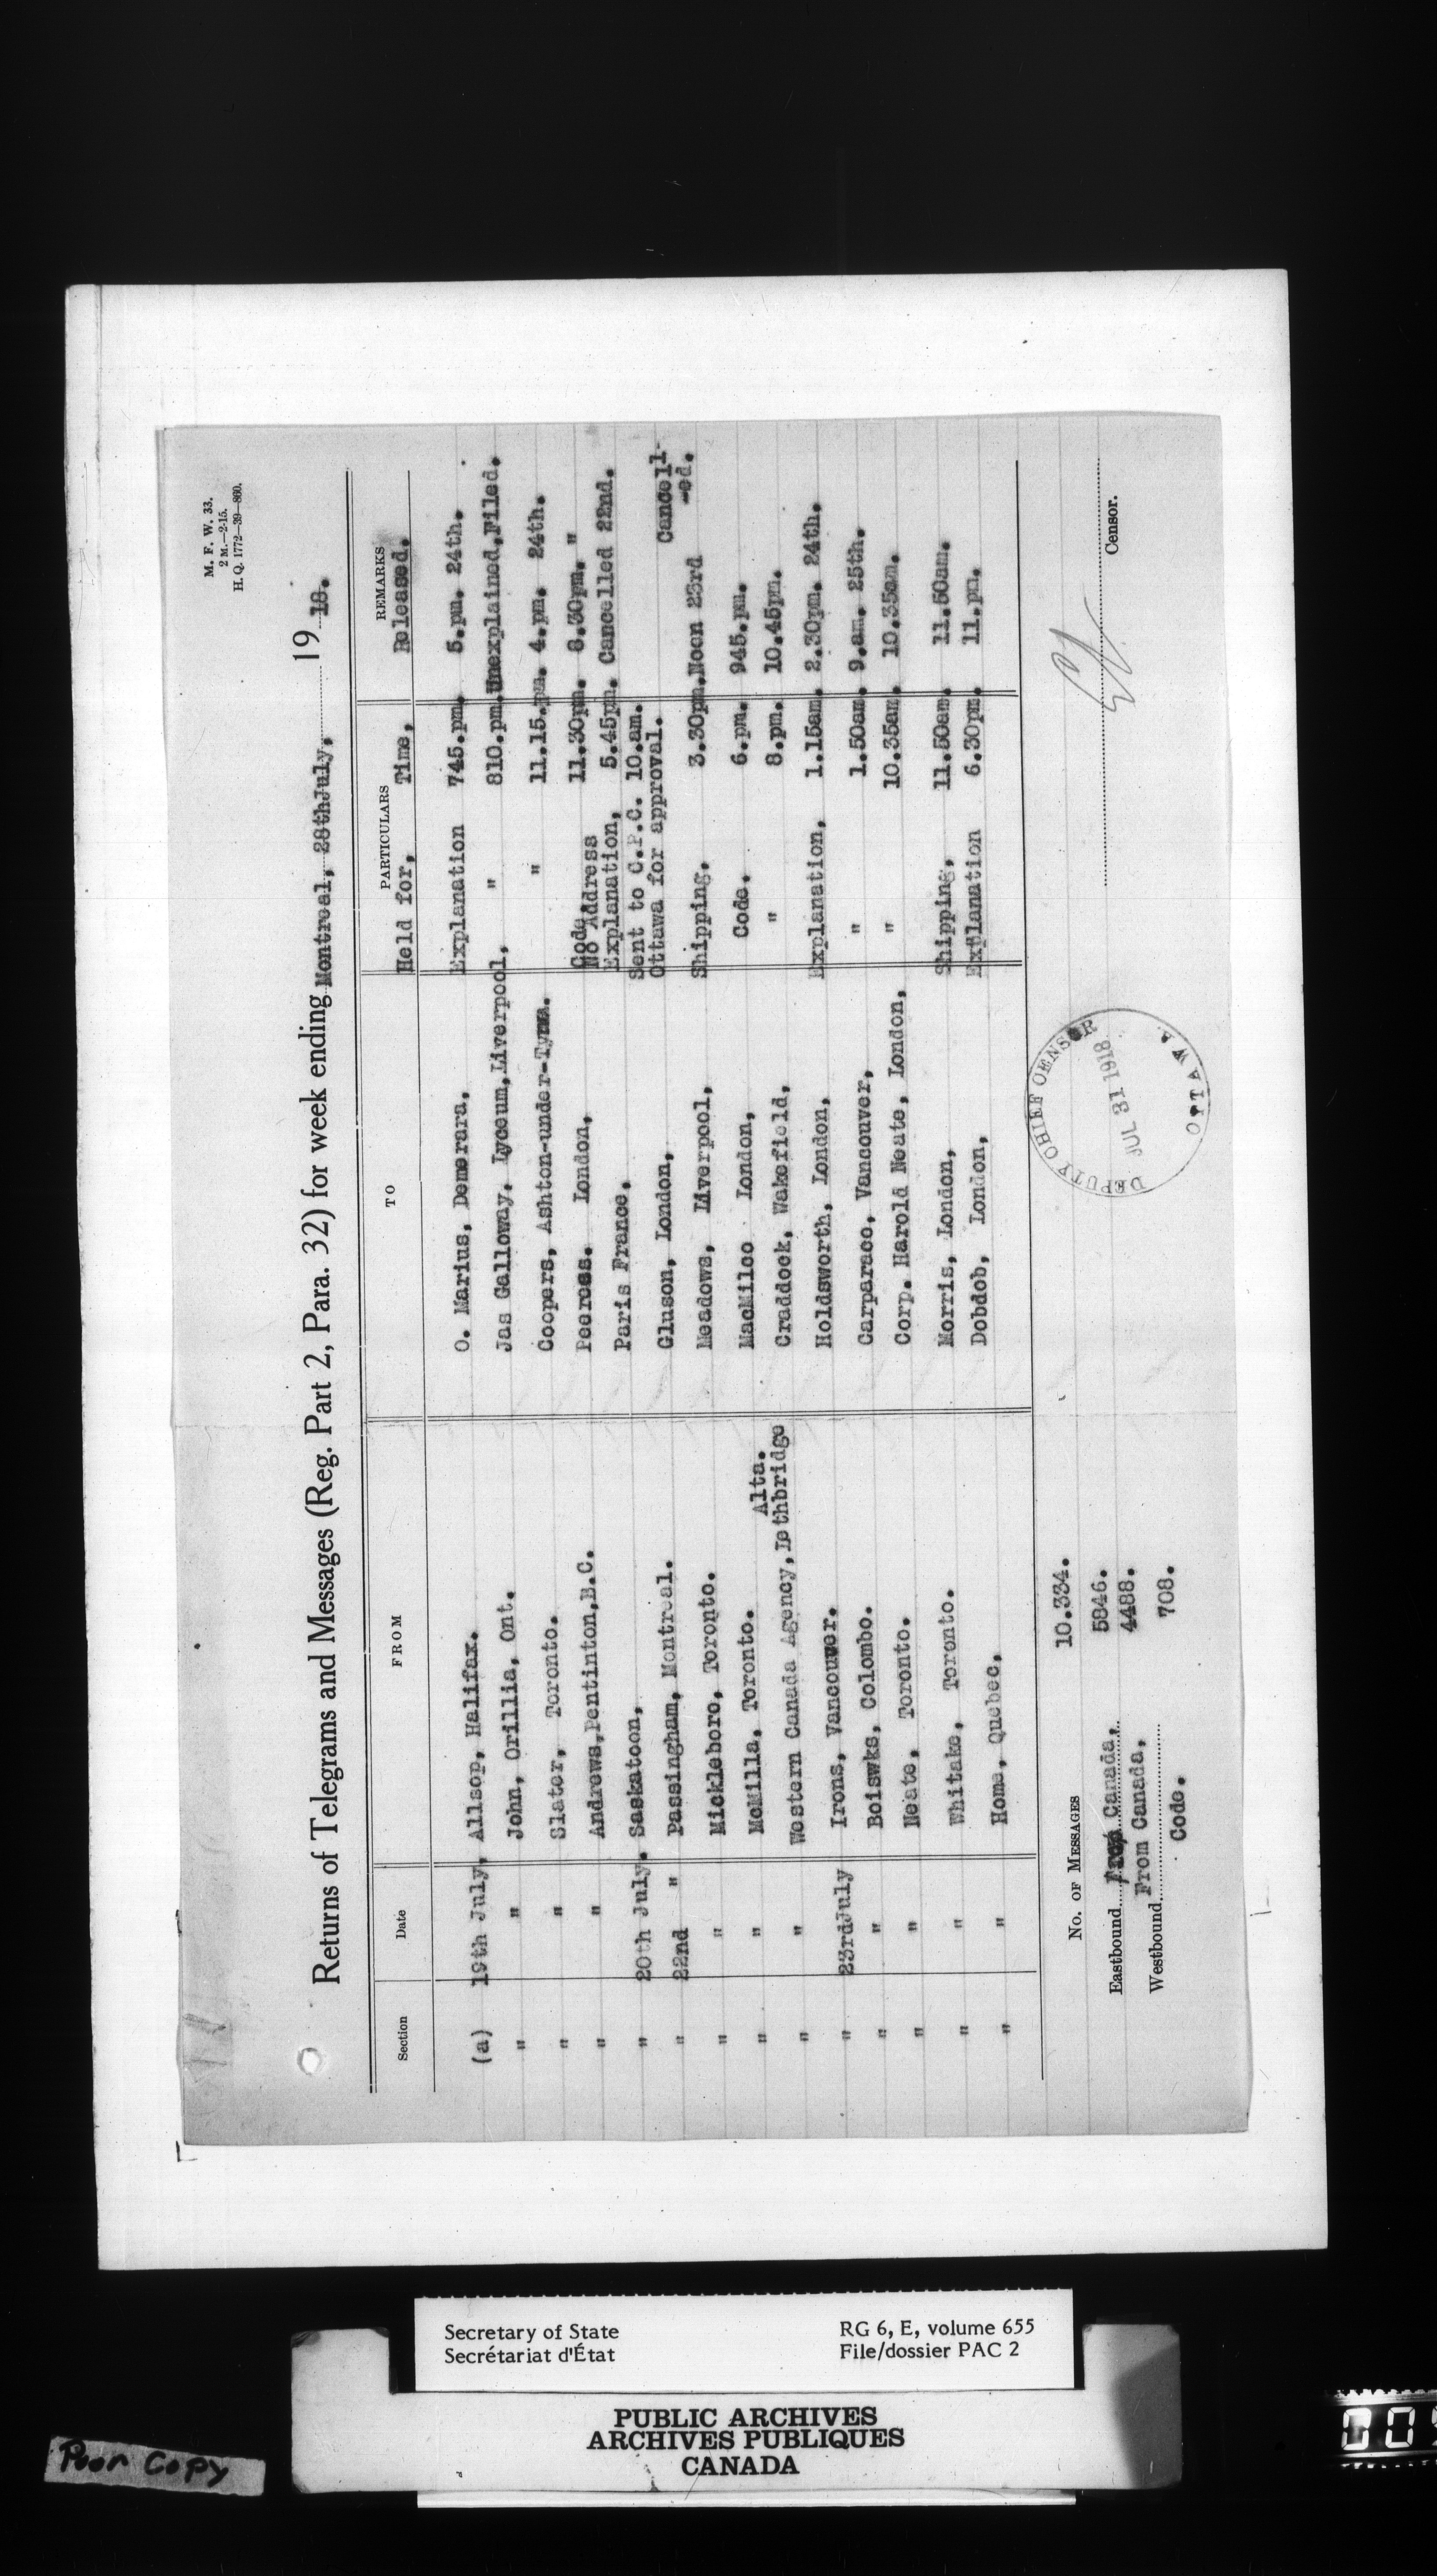 M. F. W. 33.
2 M.—2-15.
H. Q. 1772—39—860.
Returns of Telegrams and Messages (Reg. Part 2, Para. 32) for week ending Montreal, 28thJuly, 19 18.
Section Date FROM TO PARTICULARS REMARKS
Held for, Time, Released.
(a) 19th July, Allsop, Halifax. O. Marius, Demerara, Explanation 745.pm. 5.pm. 24th.
" " John, Orillia, Ont. Jas Galloway. Lyceum,Liverpool, " 810.pm.Unexplained,Filed.
" " Slater, Toronto. Coopers, Ashton-under-Tyme. " 11.15.pm. 4.pm. 24th.
" " Andrews,Pentinton,B.C. Peeress. London, Code 11.30pm. 8.30pm. "
No Address
" 20th July. Saskatoon, Paris France, Explanation, 5.45pm. Cancelled 22nd.
" 22nd " Passingham, Montreal. Gluson, London, Sent to C.P.C. 10.am.
Ottawa for approval. Cancell-
-ed.
" " Mickleboro, Toronto. Meadows, Liverpool, Shipping. 3.30pm.Noon 23rd
" " McMilla, Toronto. MacMilco London, Code. 6.pm. 945.pm.
Alta.
" " Western Canada Agency,Lethbridge Craddock, Wakefield, " 8.pm. 10.45pm.
" 23rdJuly Irons, Vancouver. Holdsworth, London, Explanation, 1.15am. 2.30pm. 24th.
" " Boiswks, Colombo. Carparaco, Vancouver, " 1.50am. 9.am. 25th.
" " Neate, Toronto. Corp. Harold Neate, London, " 10.35am. 10.35am.
" " Whitake, Toronto. Morris, London, Shipping, 11.50am. 11.50am.
" " Home, Quebec, Dobdob, London, Explanation 6.30pm. 11.pm.
No. of Messages 10.334.
Eastbound From Canada, 5846.
Westbound From Canada, 4488.
Code. 708.
DEPUTY CHIEF CENSOR
JUL 31 1918
OTTAWA
Censor.
Secretary of State
Secrétariat d'État
RG 6, E, volume 655
File/dossier PAC 2
PUBLIC ARCHIVES
ARCHIVES PUBLIQUES
CANADA
Poor Copy